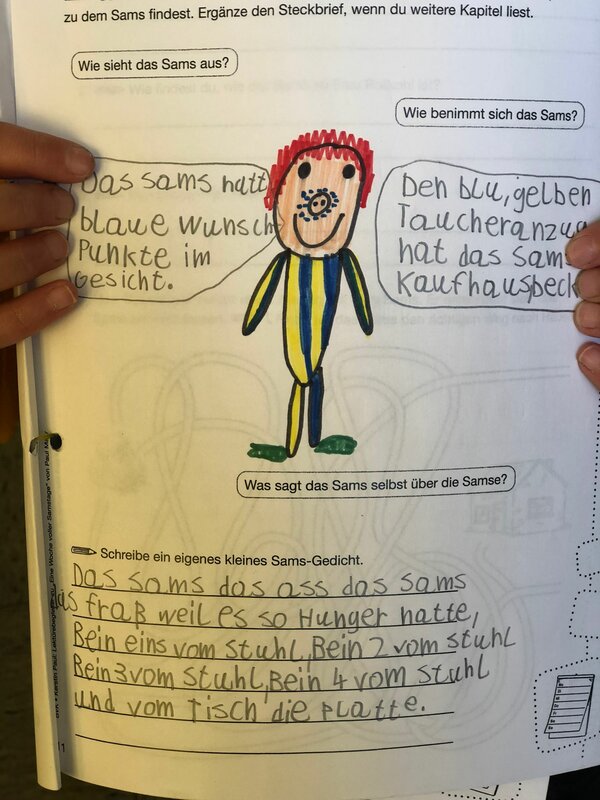 zu dem Sams findest. Ergänze den Steckbrief, wenn du weitere Kapitel liest.
Wie sieht das Sams aus?
Wie benimmt sich das Sams?
Das sams hatt
blaue Wunsch
Punkte im
Gesicht.
Den blu, gelben
Taucheranzug
hat das Sams
Kaufhausbeck
Was sagt das Sams selbst über die Samse?
Schreibe ein eigenes kleines Sams-Gedicht.
Das sams das ass das sams
das fraß weil es so Hunger hatte,
Bein eins vom stuhl, Bein 2 vom stuhl
Bein 3 vom stuhl, Bein 4 vom stuhl
und vom Tisch die Platte.